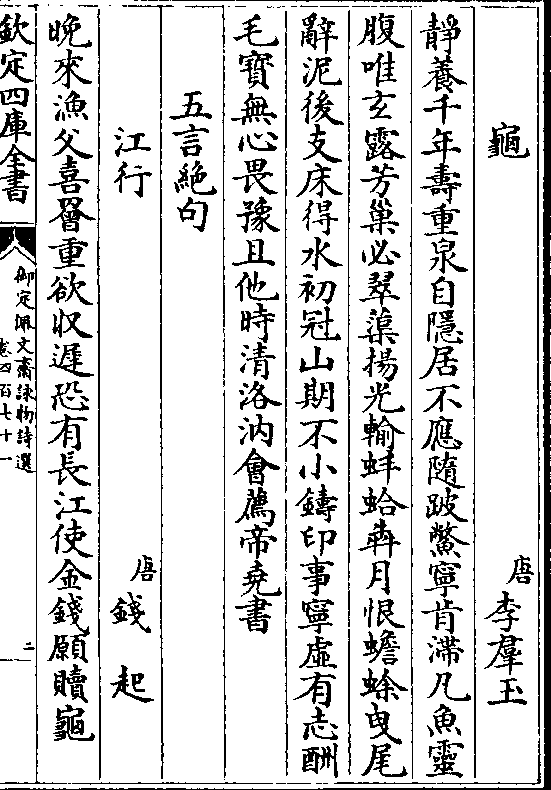 龜
唐 李羣玉
靜養千年壽重泉自隱居不應隨跛鱉寧肯滯凡魚靈
腹唯玄露芳巢必翠蕖揚光輸蚌蛤奔月恨蟾蜍曳尾
辭泥後支床得水初冠山期不小鑄印事寧虛有志酬
毛寶無心畏豫且他時清洛汭會薦帝堯書
五言絶句
江行
唐 錢起
晩來漁父喜罾重欲収遲恐有長江使金錢願贖龜
欽定四庫全書
御定佩文齋詠物詩選
卷四百七十一
二